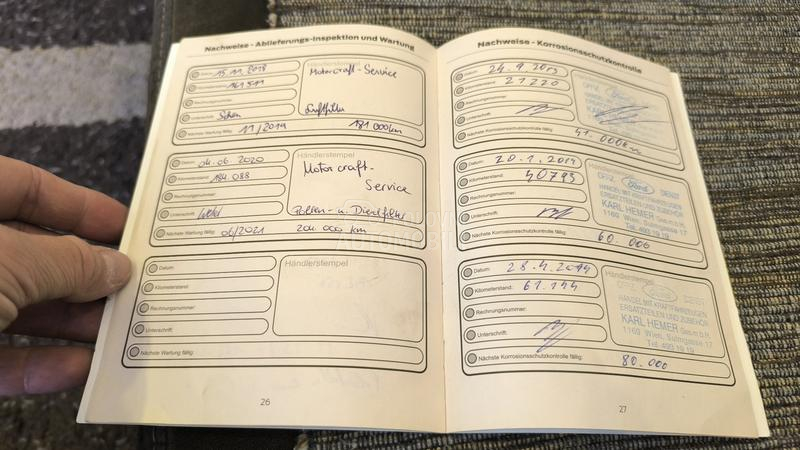 Nachweise - Ablieferungs-Inspektion und Wartung
Datum: 15.11.2018
161 511
Rechnungsnummer:
Unterschrift:
Nächste Wartung fällig: 11/2019 181 000 km
Motorcraft-Service
Luftfilter
Datum: 04.06.2020
Kilometerstand: 184.088
Rechnungsnummer:
Unterschrift:
Nächste Wartung fällig: 06/2021 204.000 km
Händlerstempel
Motorcraft-
Service
Pollen- u. Dieselfilter
Datum:
Kilometerstand:
Rechnungsnummer:
Unterschrift:
Nächste Wartung fällig:
Händlerstempel
26
Nachweise - Korrosionsschutzkontrolle
Datum: 24.9.2013
21220
Unterschrift:
Nächste Korrosionsschutzkontrolle fällig: 41.000 km
Datum: 20.1.2014
Kilometerstand: 40793
Rechnungsnummer:
Unterschrift:
Nächste Korrosionsschutzkontrolle fällig: 60.000
Händlerstempel
OFFZ. Ford DIENST
HANDEL MIT KRAFTFAHRZEUGEN
ERSATZTEILEN UND ZUBEHÖR
KARL HEMER Ges.m.b.H.
1160 Wien, Sulmgasse 17
Tel. 493 19 19
Datum: 28.4.2014
Kilometerstand: 61.144
Rechnungsnummer:
Unterschrift:
Nächste Korrosionsschutzkontrolle fällig: 80.000
Händlerstempel
OFFZ. Ford DIENST
HANDEL MIT KRAFTFAHRZEUGEN
ERSATZTEILEN UND ZUBEHÖR
KARL HEMER Ges.m.b.H.
1160 Wien, Sulmgasse 17
Tel. 493 19 19
27